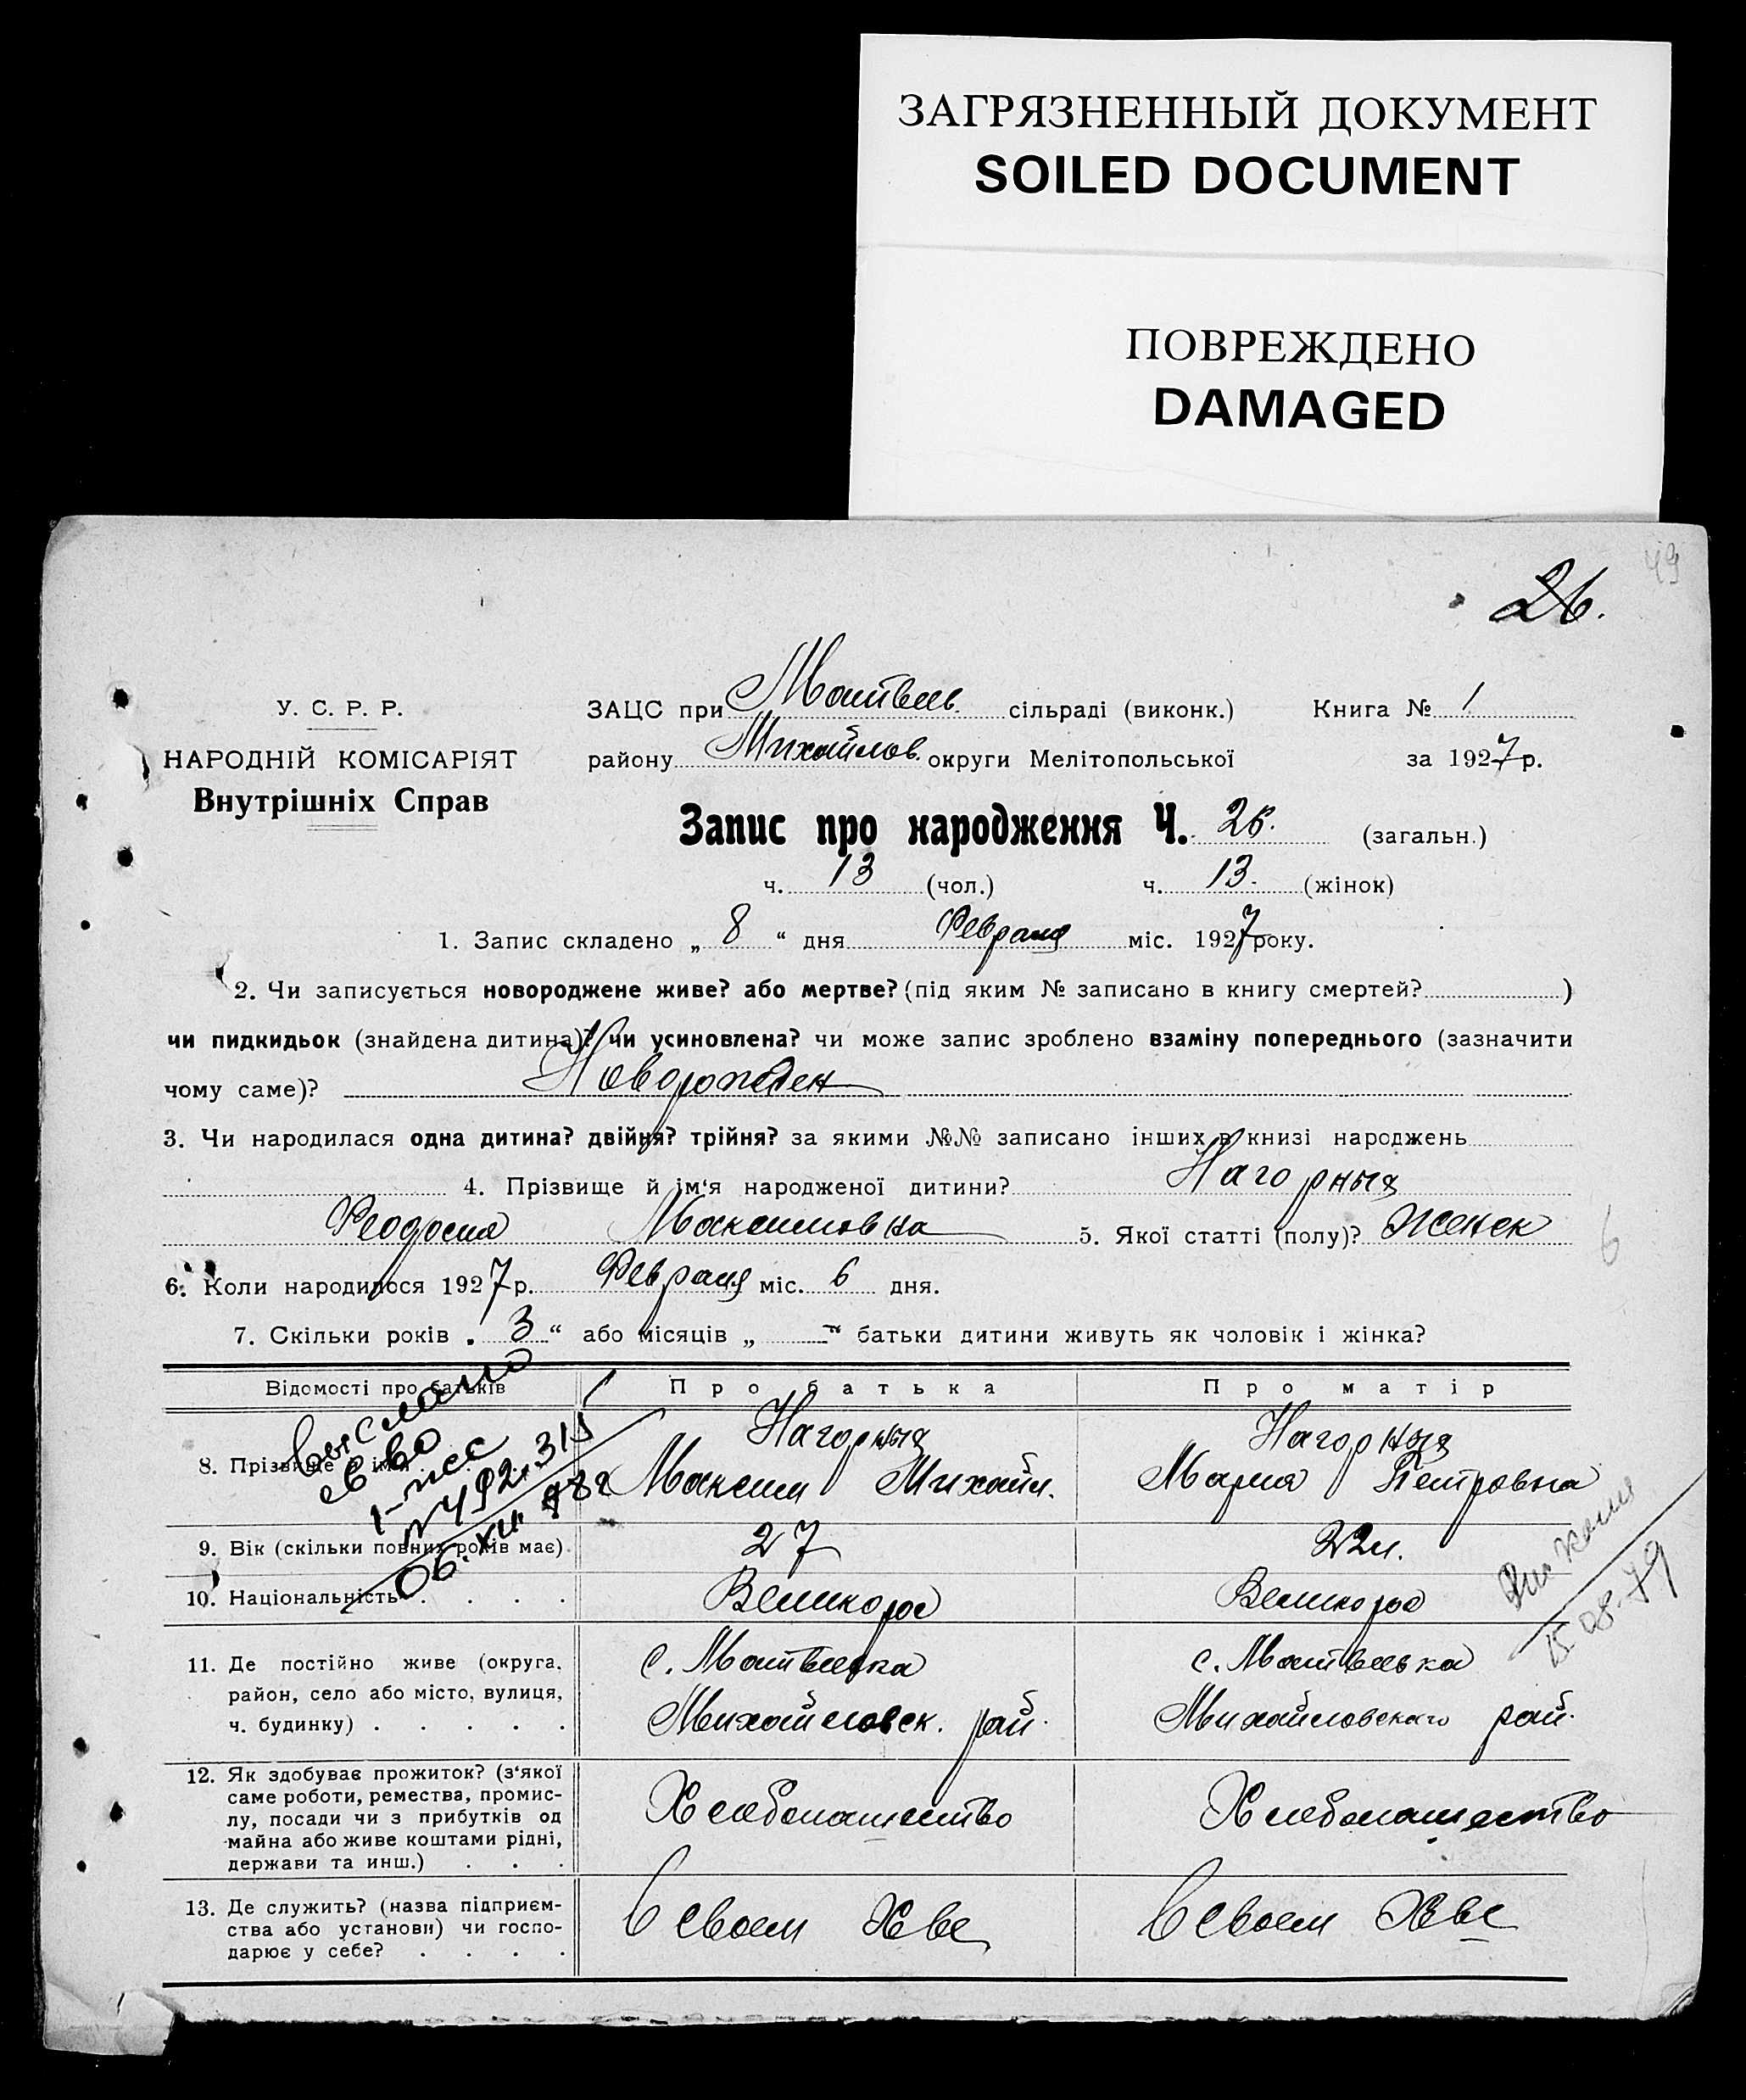 ЗАГРЯЗНЕННЫЙ ДОКУМЕНТ
SOILED DOCUMENT
ПОВРЕЖДЕНО
DAMAGED
49
26.
У. С. Р. Р.
НАРОДНІЙ КОМІСАРІЯТ
Внутрішніх Справ
ЗАЦС при Матвеев. сільраді (виконк.) Книга № 1
району Михайлов. округи Мелітопольської за 1927 р.
Запис про народження Ч. 26. (загальн.)
ч. 13 (чол.) ч. 13. (жінок)
1. Запис складено „ 8 “ дня Февраля міс. 1927 року.
2. Чи записується новороджене живе? або мертве? (під яким № записано в книгу смертей? )
чи пидкидьок (знайдена дитина)? чи усиновлена? чи може запис зроблено взаміну попереднього (зазначити
чому саме)? Новорожден
3. Чи народилася одна дитина? двійня? трійня? за якими №№ записано інших в книзі народжень
4. Прізвище й ім‘я народженої дитини? Нагорных
Феодосия Максимовна 5. Якої статті (полу)? Женск
6. Коли народилося 1927 р. Февраля міс. 6 дня.
7. Скільки років „ 3 “ або місяців „ — “ батьки дитини живуть як чоловік і жінка?
Відомості про батьків Про батька Про матір
8. Прізвище й ім‘я Нагорных Нагорных
Максим Михайл. Мария Петровна
9. Вік (скільки повних років має) 27 22 л.
10. Національність . . . . Великорос Великорос
11. Де постійно живе (округа, район, село або місто, вулиця, ч. будинку) . . . . .
с. Матвеевка с. Матвеевка
Михайловск. рай. Михайловскаго рай.
12. Як здобуває прожиток? (з‘якої саме роботи, ремества, промислу, посади чи з прибутків од майна або живе коштами рідні, держави та инш.) . . .
Хлебопашество Хлебопашество
13. Де служить? (назва підприємства або установи) чи господарює у себе? . . . .
В своем Хве В своем Хве
Выслано
св во
1-жс
06. XII.
15 08.79
6